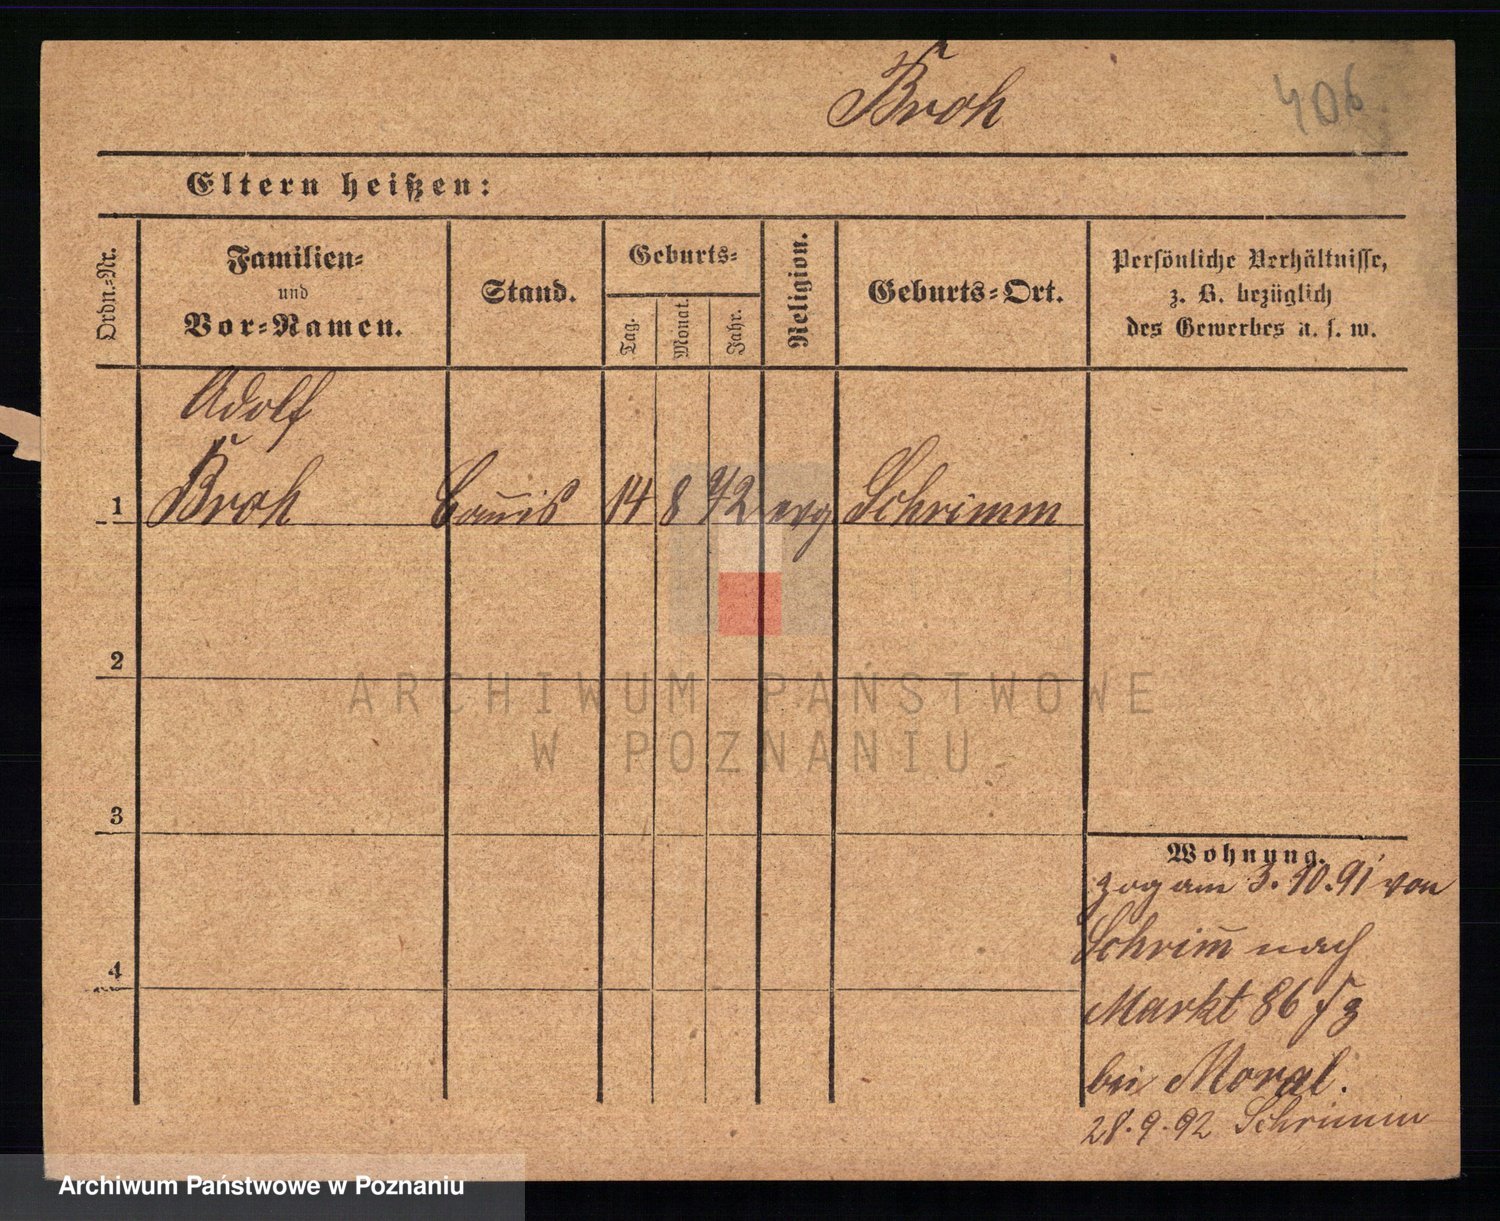 Broh
406
Eltern heißen:
Ordn.-Nr.
Familien-
und
Vor-Namen.
Stand.
Geburts-
Tag.
Monat.
Jahr.
Religion.
Geburts-Ort.
Persönliche Verhältnisse,
z. B. bezüglich
des Gewerbes u. s. w.
Adolf
1 Broh Com̄is 14 8 72 evg Schrimm
2
3
4
Wohnung.
zog am 3. 10. 91 von
Schrim̄ nach
Markt 86
bei Moral.
28. 9. 92 Schrimm
ARCHIWUM PAŃSTWOWE
W POZNANIU
Archiwum Państwowe w Poznaniu